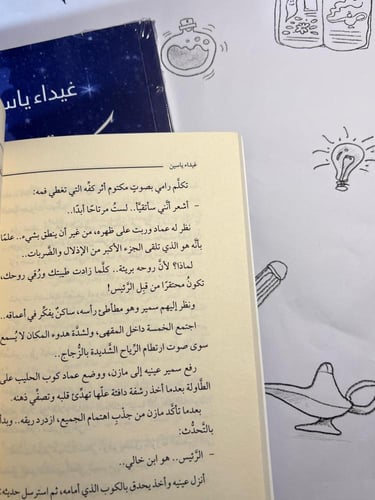 غيداء ياسين
تكلّم رامي بصوتٍ مكتوم أثر كفّه التي تغطي فمه:
- أشعر أنّني سأتقيّأ.. لستُ مرتاحًا أبدًا..
نظر له عماد وربت على ظهره، من غير أن ينطق بشيء.. علمًا
بأنّه هو الذي تلقى الجزء الأكبر من الإذلال والضّربات..
لماذا؟ لأنّ روحه بريئة.. كلّما زادت طيبتك ورُقي روحك،
تكونُ محتقرًا من قبل الرّئيس!
ونظر إليهم سمير وهو مطأطئ رأسه، ساكنٌ يفكّر في أعماقه..
اجتمع الخمسة داخل المقهى، ولشدّة هدوء المكان لا يُسمع
سوى صوت ارتطام الرّياح الشّديدة بالزُّجاج..
رفع سمير عينيه إلى مازن، ووضع عماد كوب الحليب على
الطّاولة بعدما أخذ رشفة دافئة علّها تهدّئ قلبه وتصفّي ذهنه.
بعدما تأكّد مازن من جذبِ اهتمام الجميع، ازدرد ريقه.. وبدأ
بالتّحدُّث:
- الرّئيس.. هو ابن خالي..
أنزل عينيه وأخذ يحدق بالكوب الذي أمامه، ثم استرسل حديثه:
غيداء ياس